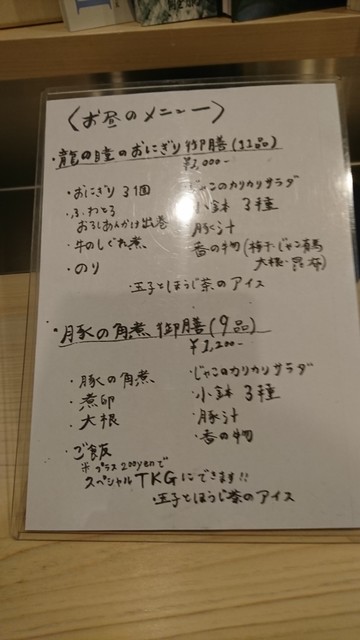 〈お昼のメニュー〉
・龍の瞳のおにぎり御膳(11品)
¥2,000-
・おにぎり 3個
・ふわとろ
おろしあんかけ出巻
・牛のしぐれ煮
・のり
・じゃこのカリカリサラダ
・小鉢 3種
・豚汁
・香の物(梅干・じゃこ有馬
大根・昆布)
・玉子とほうじ茶のアイス
・豚の角煮 御膳(9品)
¥2,200-
・豚の角煮
・煮卵
・大根
・ご飯
※プラス200yenで
スペシャルTKGにできます!!
・じゃこのカリカリサラダ
・小鉢 3種
・豚汁
・香の物
・玉子とほうじ茶のアイス